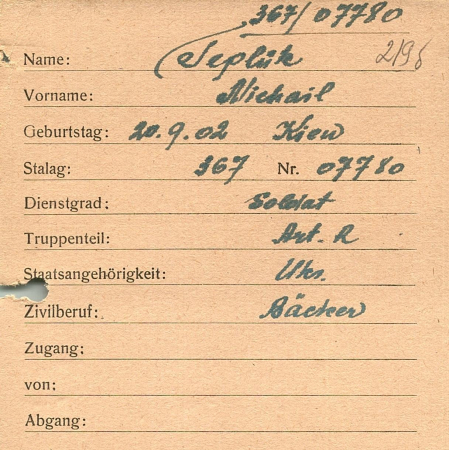 367/07780
Name: Seplük
Vorname: Michail
Geburtstag: 20.9.02 Kiew
Stalag: 367 Nr. 07780
Dienstgrad: Soldat
Truppenteil: Art. R
Staatsangehörigkeit: Ukr.
Zivilberuf: Bäcker
Zugang:
von:
Abgang: